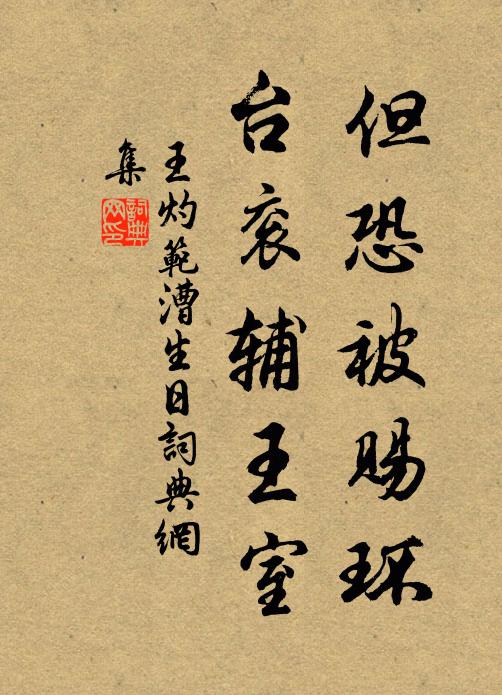 但恐被赐环
台衮辅王室
王灼範漕生日詞典網
集
詞典
网印